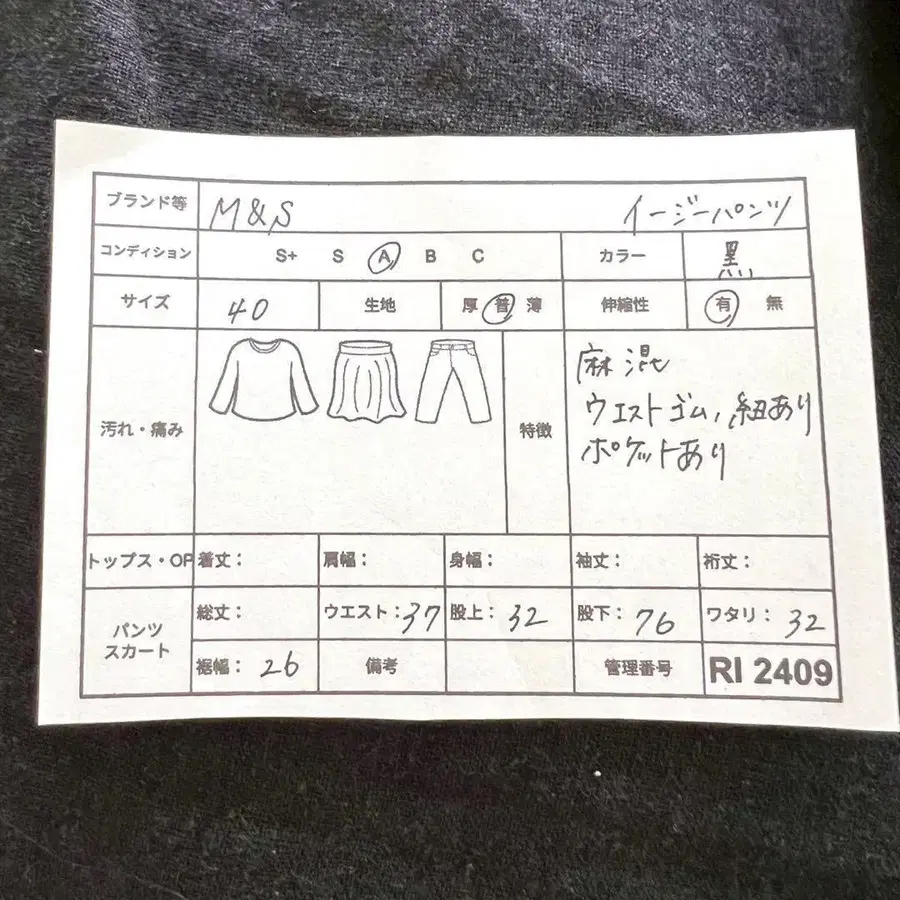 ブランド等 M&S イージーパンツ
コンディション S+ S A B C カラー 黒
サイズ 40 生地 厚 普 薄 伸縮性 有 無
汚れ・痛み 特徴 麻混
ウエストゴム,紐あり
ポケットあり
トップス・OP 着丈: 肩幅: 身幅: 袖丈: 裄丈:
パンツ スカート 総丈: ウエスト:37 股上:32 股下:76 ワタリ:32
裾幅:26 備考 管理番号 RI 2409